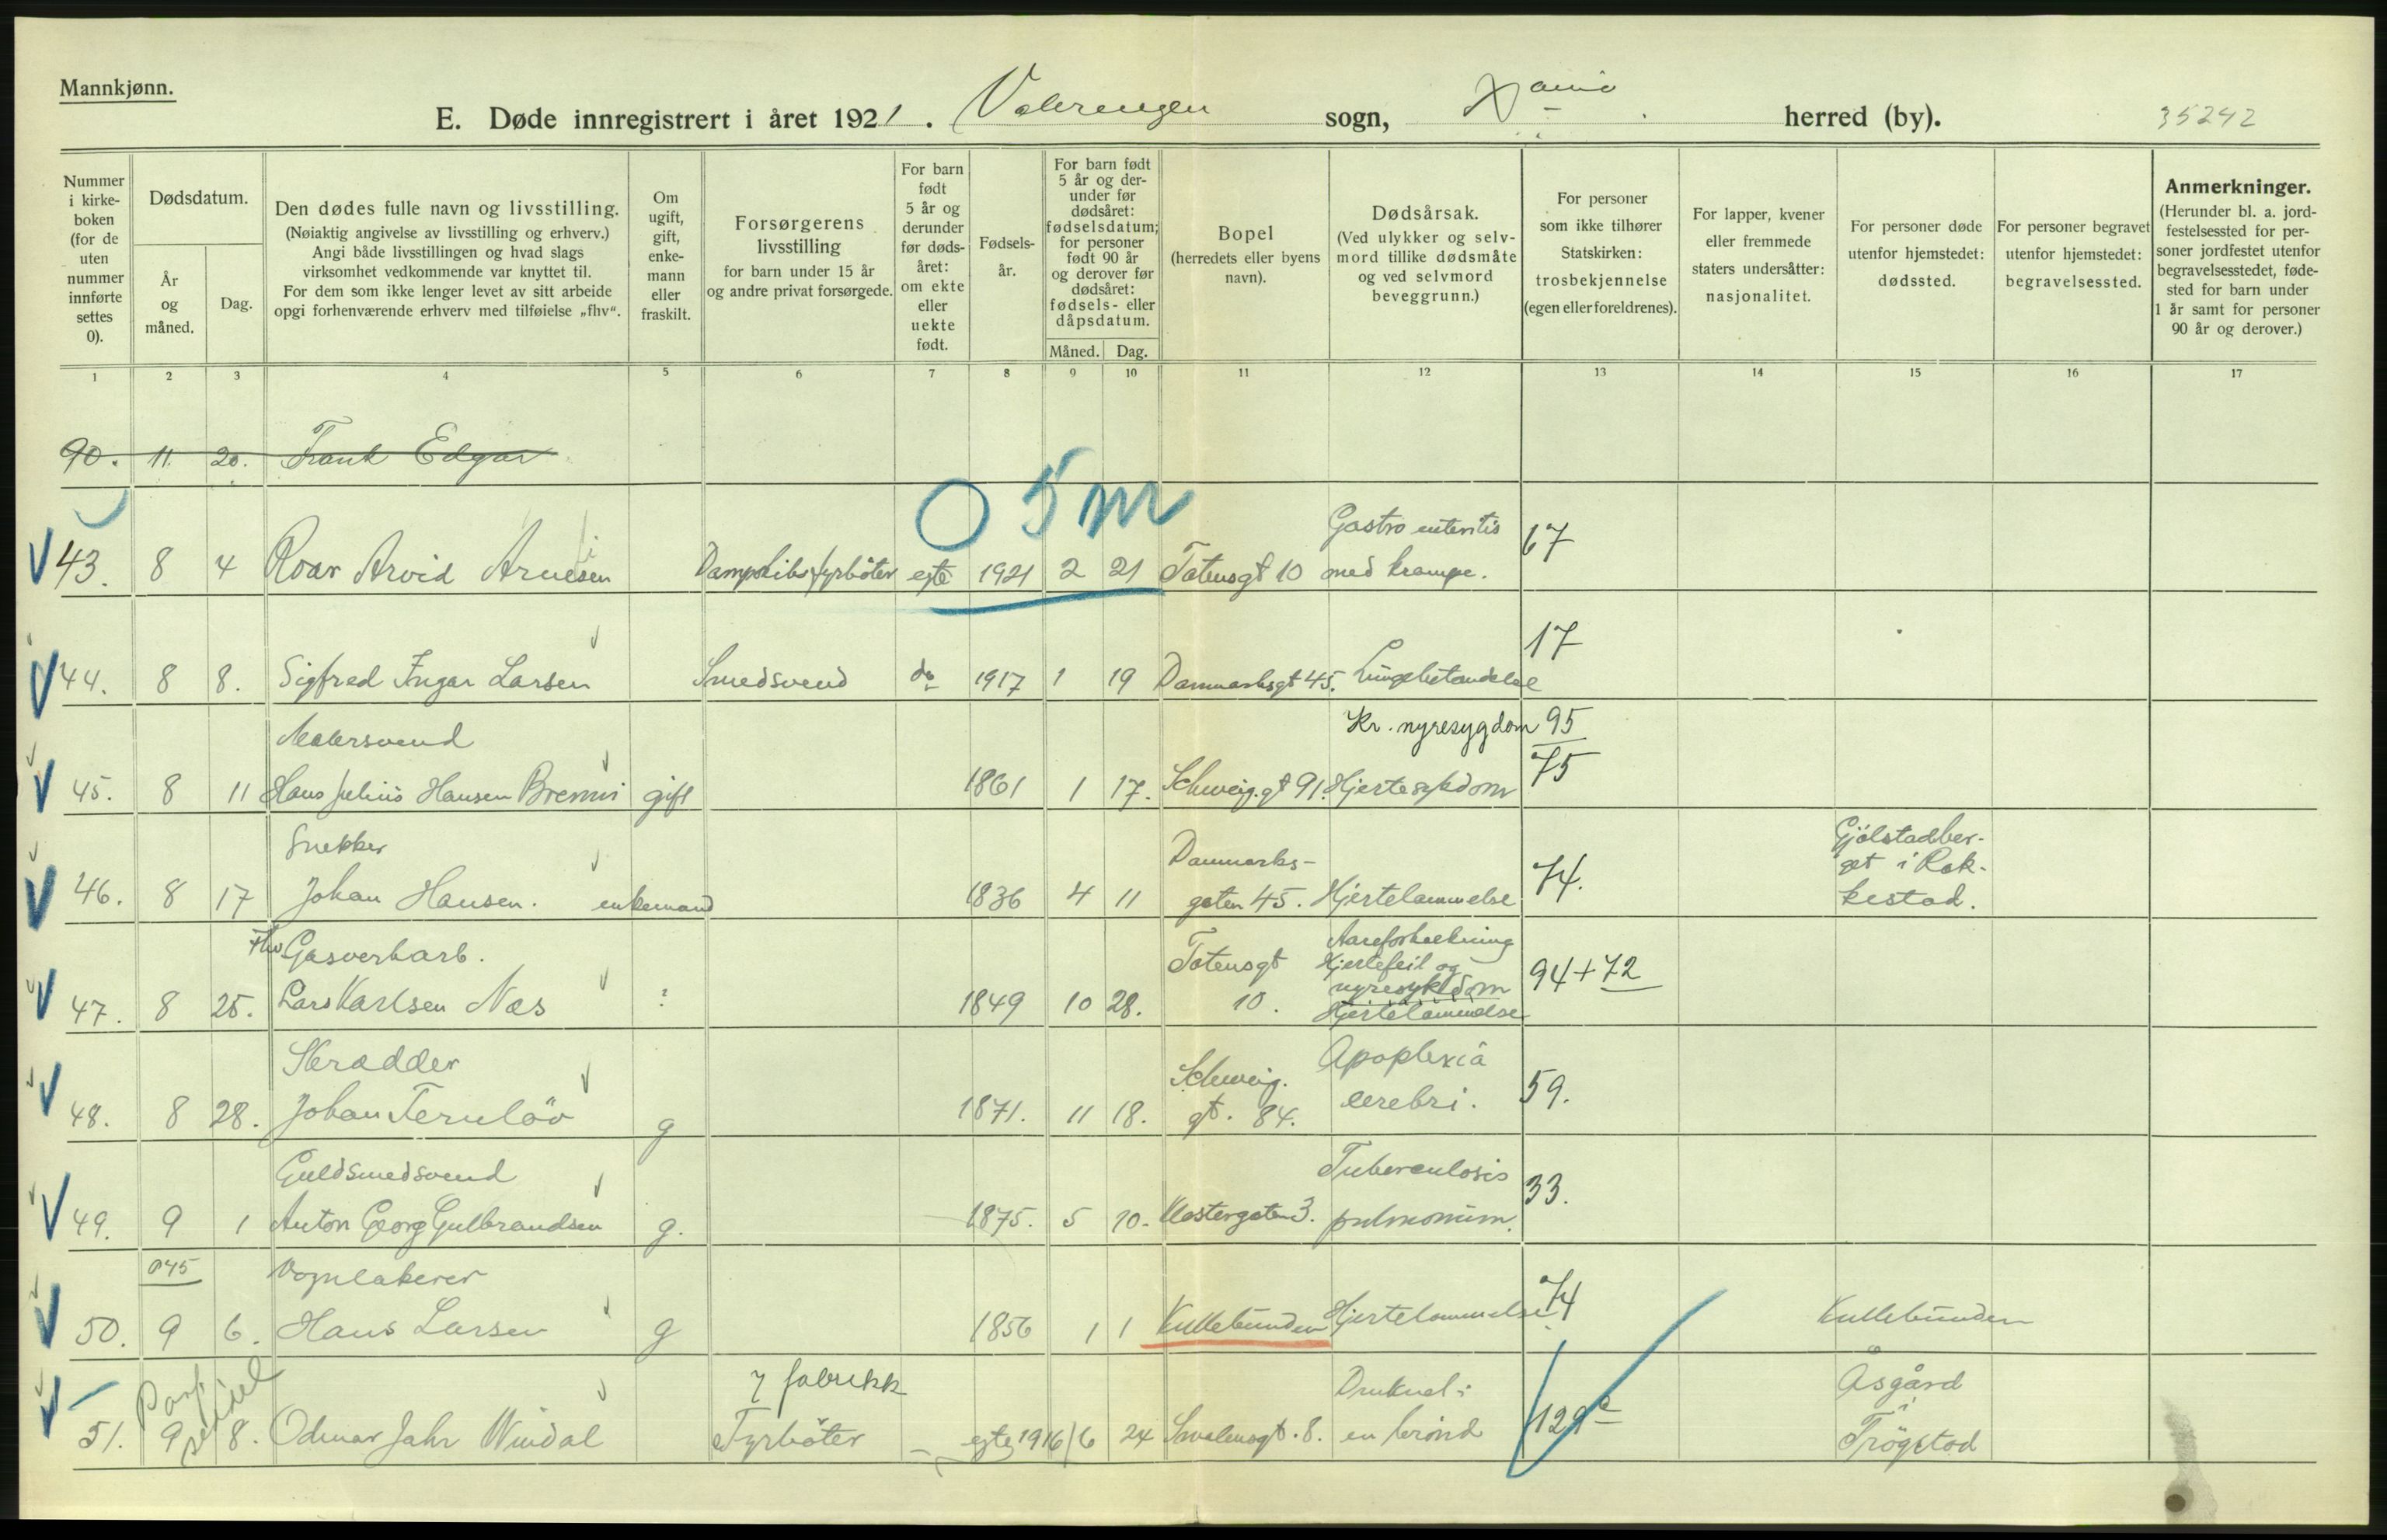 Mannkjønn.
E. Døde innregistrert i året 1921. Vålerengen sogn, Xania herred (by).
35242
Nummer i kirke- boken (for de uten nummer innførte settes 0).
Dødsdatum.
År og måned.
Dag.
Den dødes fulle navn og livsstilling.
(Nøiaktig angivelse av livsstilling og erhverv.)
Angi både livsstillingen og hvad slags
virksomhet vedkommende var knyttet til.
For dem som ikke lenger levet av sitt arbeide
opgi forhenværende erhverv med tilføielse „fhv“.
Om ugift, gift, enke- mann eller fraskilt.
Forsørgerens livsstilling
for barn under 15 år
og andre privat forsørgede.
For barn født 5 år og derunder før døds- året: om ekte eller uekte født.
Fødsels- år.
For barn født 5 år og der- under før dødsåret: fødselsdatum; for personer født 90 år og derover før dødsåret: fødsels- eller dåpsdatum.
Måned. Dag.
Bopel
(herredets eller byens navn).
Dødsårsak.
(Ved ulykker og selv- mord tillike dødsmåte og ved selvmord beveggrunn.)
For personer som ikke tilhører Statskirken: trosbekjennelse (egen eller foreldrenes).
For lapper, kvener eller fremmede staters undersåtter: nasjonalitet.
For personer døde utenfor hjemstedet: dødssted.
For personer begravet utenfor hjemstedet: begravelsessted.
Anmerkninger.
(Herunder bl. a. jord- festelsessted for per- soner jordfestet utenfor begravelsesstedet, føde- sted for barn under 1 år samt for personer 90 år og derover.)
1 2 3 4 5 6 7 8 9 10 11 12 13 14 15 16 17
90. 11. 20. Frank Edgar
0 5 m
Gastro enteritis 67
43. 8 4 Roar Arvid Arnesen Dampskibsfyrböter egte 1921 2 21 Totensgt 10 med krampe.
17
44. 8 8. Sigfred Ingar Larsen Smedsvend do 1917 1 19 Danmarksgt 45. Lungebetændelse
Malersvend Kr. nyresygdom 95
45. 8 11 Hans Julius Hansen Bremni gift 1861 1 17. Schweig.gt 91. Hjertesykdom 75
Snekker Danmarks- Gjölstadber-
get i Rak-
46. 8 17 Johan Hansen. enkemand 1836 4 11 gaten 45. Hjertelammelse 74. kestad.
Fhv Gasverkarb. Totensgt Aareforkalkning
Hjertefeil og
nyresykdom 94+72
47. 8 25. Lars Karlsen Næs : 1849 10 28. 10. Hjertelammelse
Skrædder Schweig. Apoplexia
48. 8 28. Johan Ternlöv g 1871. 11 18. gt. 84. cerebri. 59.
Guldsmedsvend Tuberculosis
49. 9 1 Anton Georg Gulbrandsen g. 1875. 5 10. Klostergaten 3. pulmonum. 33.
045 Vognlakerer
50. 9 6. Hans Larsen g 1856 1 1 Kullebunden Hjertelammelse 74 Kullebunden
Par seddel
i fabrikk Druknet i Åsgård
i
51. 9 8. Odmar Jahr Windal Fyrböter egte 1916 6 24 Smalensgt. 8. en brönd 129c Trögstad